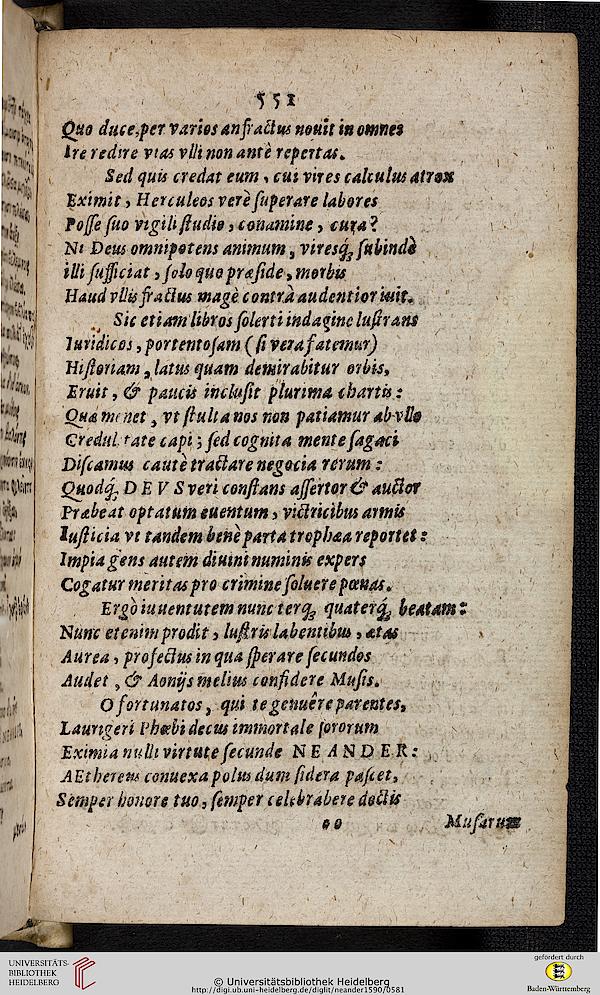 551
Quo duce, per varios anfractus nouit in omnes
Ire redire vias vlli non antè repertas.
Sed quis credat eum, cui vires calculus atrox
Eximit, Herculeos verè superare labores
Posse suo vigili studio, conamine, cura?
Ni Deus omnipotens animum, viresq́; subindè
illi sufficiat, solo quo præside, morbis
Haud vllis fractus magè contrà audentior iuit.
Sic etiam libros solerti indagine lustrans
Iuridicos, portentosam (si vera fatemur)
Historiam, latus quam demirabitur orbis,
Eruit, & paucis inclusit plurima chartis:
Quæ monet, vt stulta nos non patiamur ab vllo
Credulitate capi; sed cognita mente sagaci
Discamus cautè tractare negocia rerum:
Quodq́; DEVS veri constans assertor & auctor
Præbeat optatum euentum, victricibus armis
Iusticia vt tandem benè parta trophæa reportet:
Impia gens autem diuini numinis expers
Cogatur meritas pro crimine soluere pœnas.
Ergò iuuentutem nunc terq́; quaterq́; beatam:
Nunc etenim prodit, lustris labentibus, ætas
Aurea, profectus in qua sperare secundos
Audet, & Aonijs melius confidere Musis.
O fortunatos, qui te genuêre parentes,
Laurigeri Phœbi decus immortale sororum
Eximia nulli virtute secunde NEANDER:
AEthereus conuexa polus dum sidera pascet,
Semper honore tuo, semper celebrabere doctis
oo
Musarum
UNIVERSITÄTS-
BIBLIOTHEK
HEIDELBERG
© Universitätsbibliothek Heidelberg
http://digi.ub.uni-heidelberg.de/diglit/neander1590/0581
gefördert durch
Baden-Württemberg